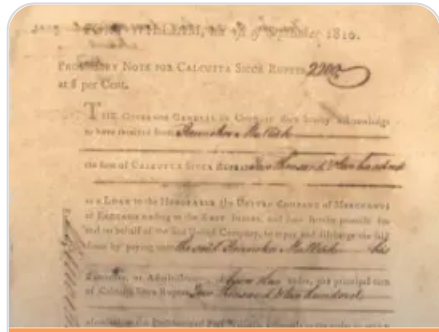 FORT WILLIAM, the of September 1810.
PROMISSORY NOTE FOR CALCUTTA SICCA RUPEES 2200
at 8 per Cent.
THE GOVERNOR GENERAL in COUNCIL does hereby acknowledge
to have received from Ramkan Mullick
the Sum of CALCUTTA SICCA RUPEES Two thousand & two hundred
as a LOAN to the HONORABLE the UNITED COMPANY of MERCHANTS
of ENGLAND trading to the EAST INDIES, and does hereby promise for
and on behalf of the said United Company, to repay and discharge the said
Loan by paying unto the said Mullick his
Executors, or Administrators, or order, the principal sum
of Calcutta Sicca Rupees Two thousand & two hundred